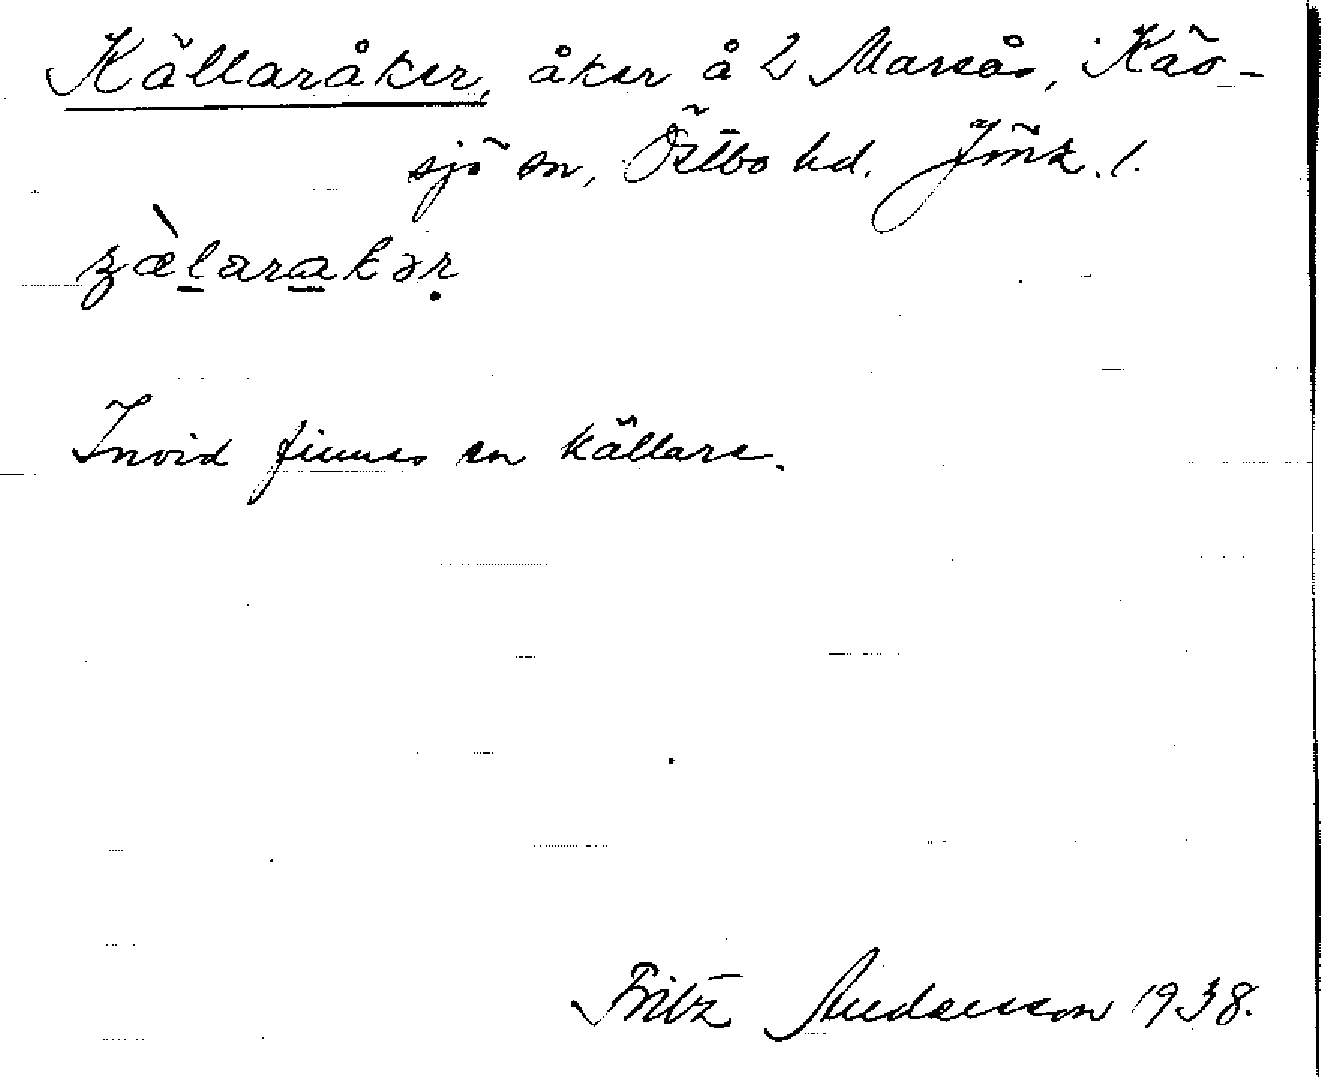 Källaråker, åker å 2 Marsås, Käv-
sjö sn, Östbo hd. Jönk. l.
Invid finnes en källare.
Fritz Andersson 1938.